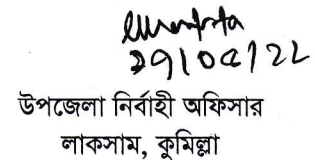 ২৭/০৫/২২
উপজেলা নির্বাহী অফিসার
লাকসাম, কুমিল্লা